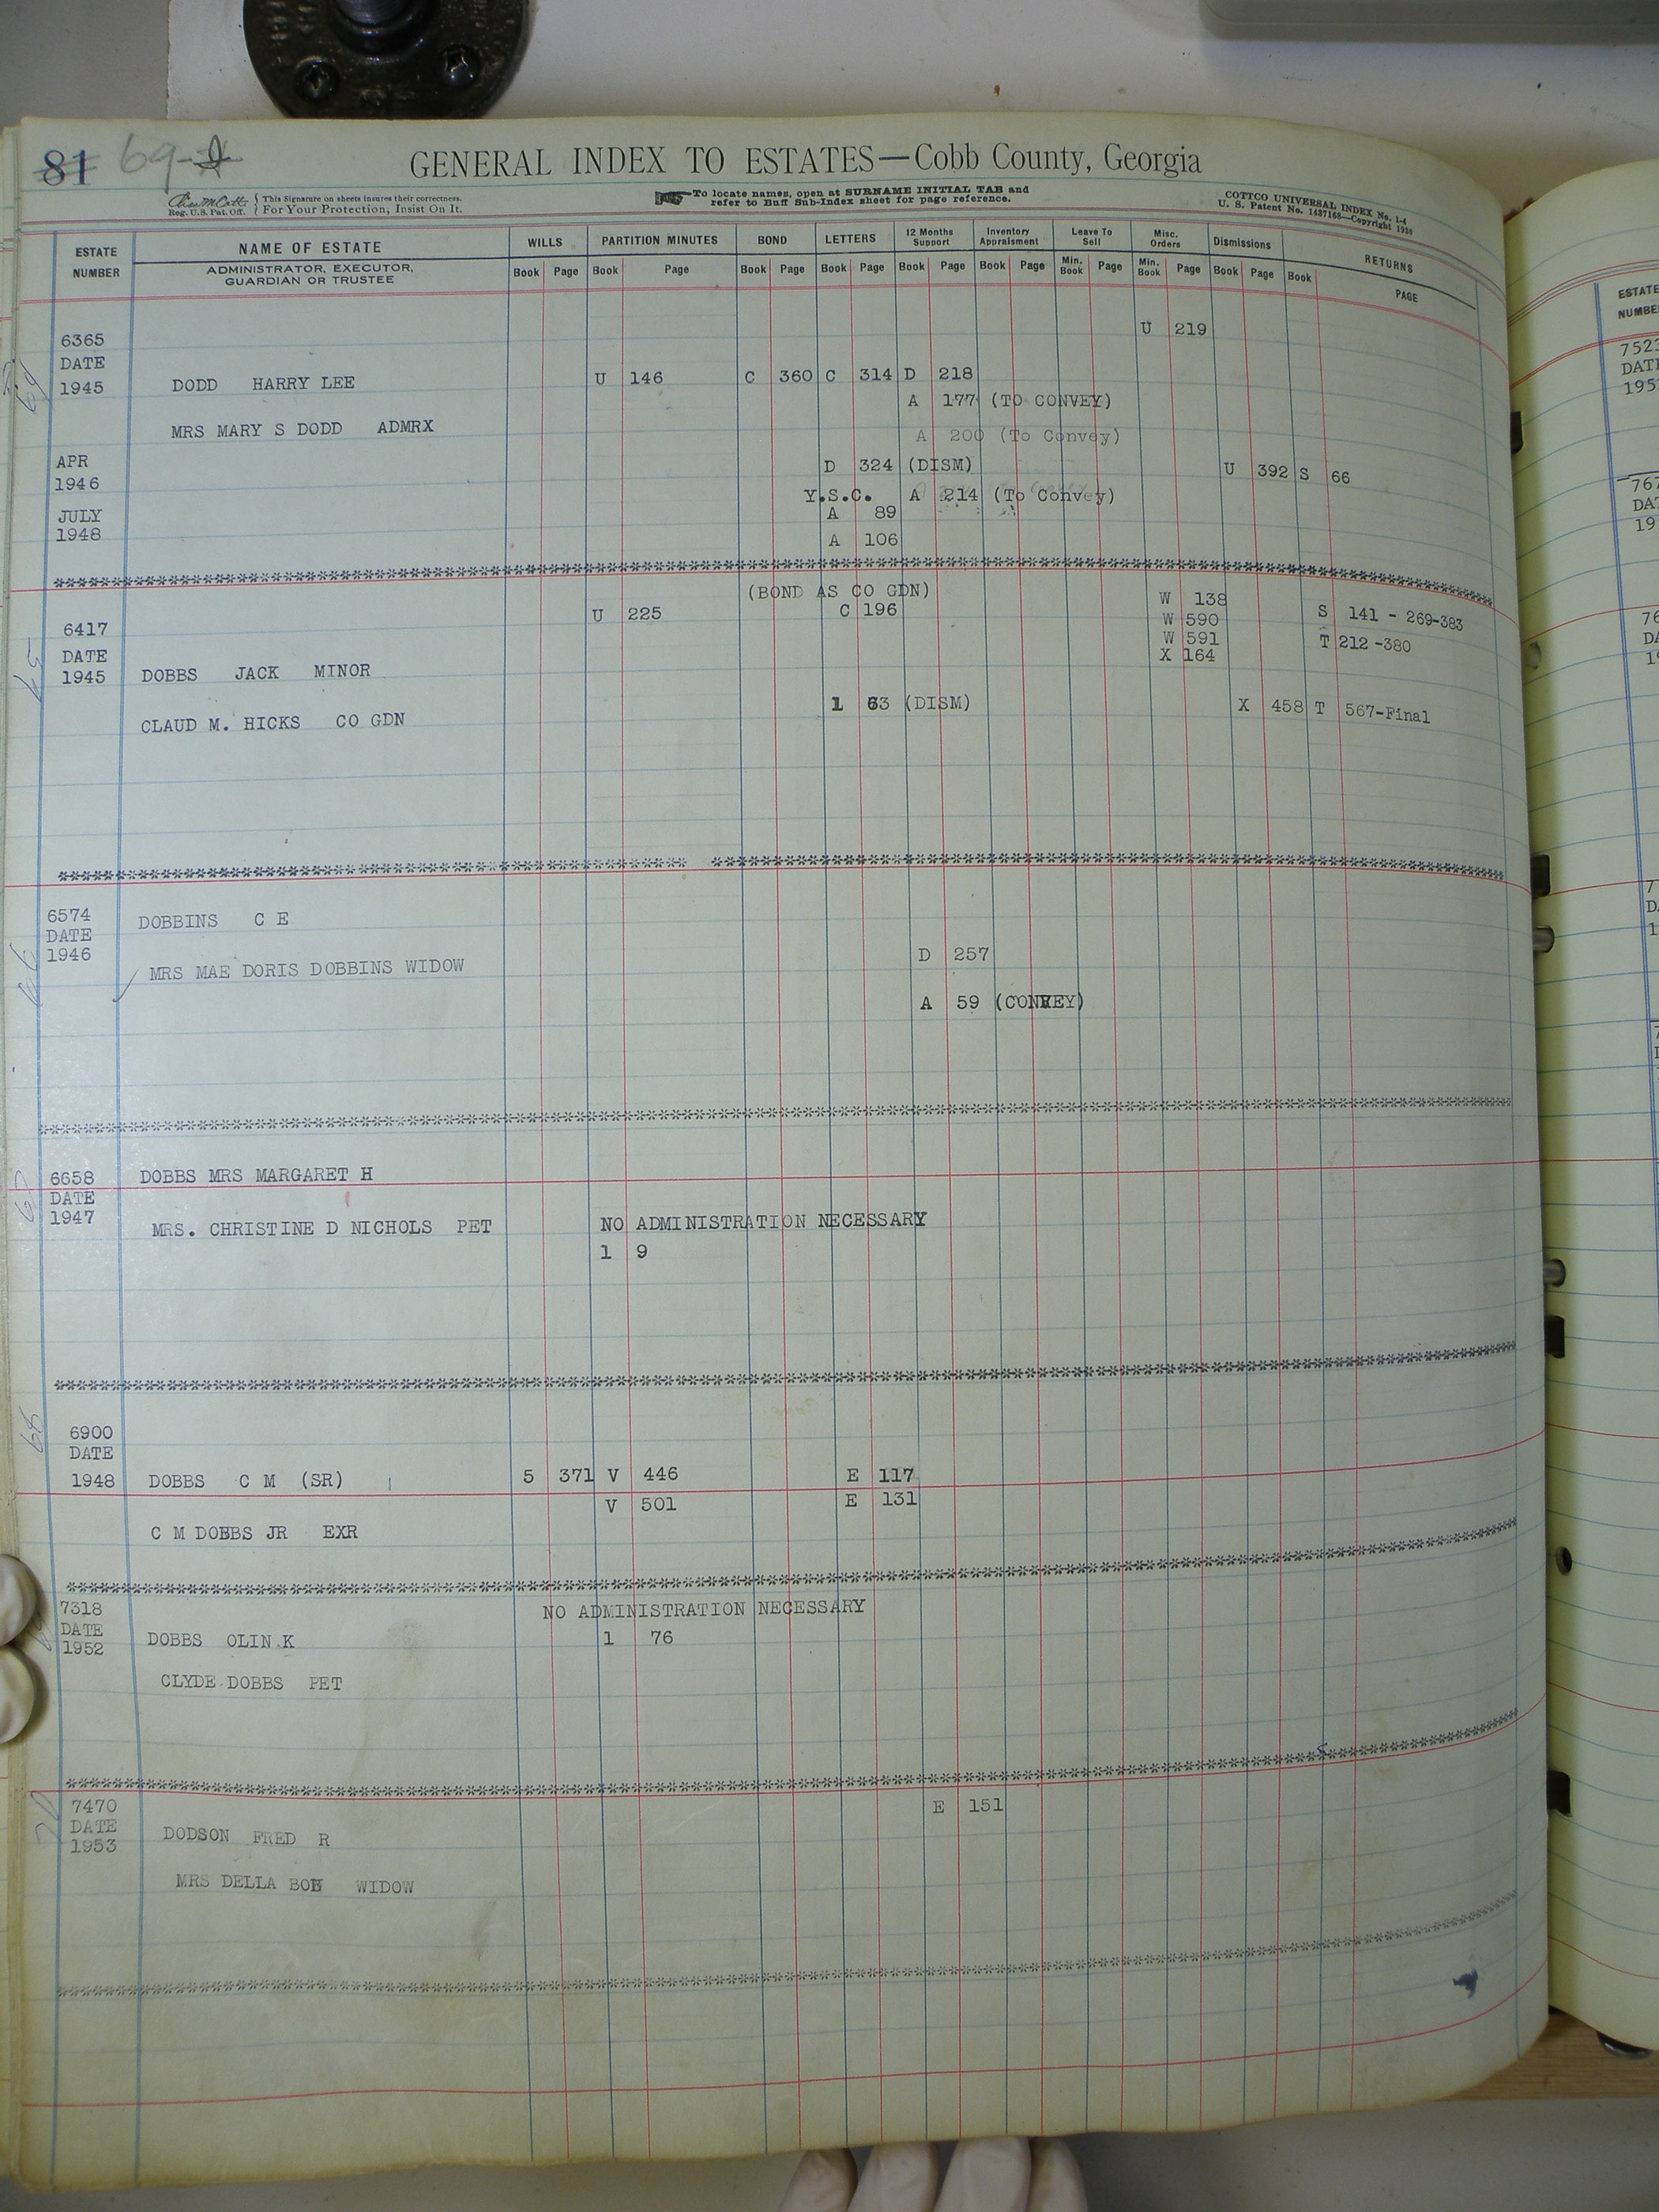 81 69-
GENERAL INDEX TO ESTATES—Cobb County, Georgia
Reg. U. S. Pat. Off. { This Signature on sheets insures their correctness. For Your Protection, Insist On It.
To locate names, open at SURNAME INITIAL TAB and
refer to Buff Sub-Index sheet for page reference.
COTTCO UNIVERSAL INDEX No. 1-4
U. S. Patent No. 1437168—Copyright 1930
ESTATE NUMBER
NAME OF ESTATE
ADMINISTRATOR, EXECUTOR,
GUARDIAN OR TRUSTEE
WILLS PARTITION MINUTES BOND LETTERS 12 Months Support Inventory Appraisment Leave To Sell Misc. Orders Dismissions RETURNS
Book Page Book Page Book Page Book Page Book Page Book Page Min. Book Page Min. Book Page Book Page Book PAGE
U 219
6365
DATE
1945 DODD HARRY LEE U 146 C 360 C 314 D 218
A 177 (TO CONVEY)
MRS MARY S DODD ADMRX A 200 (To Convey)
APR D 324 (DISM) U 392 S 66
1946 Y.S.C. A 214 (To Convey)
JULY A 89
1948 A 106
(BOND AS CO GDN)
U 225 C 196 W 138 S 141 - 269-383
6417 W 590
DATE W 591 T 212-380
1945 DOBBS JACK MINOR X 164
1 63 (DISM) X 458 T 567-Final
CLAUD M. HICKS CO GDN
6574 DOBBINS C E
DATE
1946 D 257
MRS MAE DORIS DOBBINS WIDOW
A 59 (CONVEY)
6658 DOBBS MRS MARGARET H
DATE
1947 MRS. CHRISTINE D NICHOLS PET NO ADMINISTRATION NECESSARY
1 9
6900
DATE
1948 DOBBS C M (SR) 5 371 V 446 E 117
V 501 E 131
C M DOBBS JR EXR
7318 NO ADMINISTRATION NECESSARY
DATE
1952 DOBBS OLIN K 1 76
CLYDE DOBBS PET
7470 E 151
DATE
1953 DODSON FRED R
MRS DELLA WIDOW
ESTATE
NUMBE
7523
DAT
195
767
DA
19